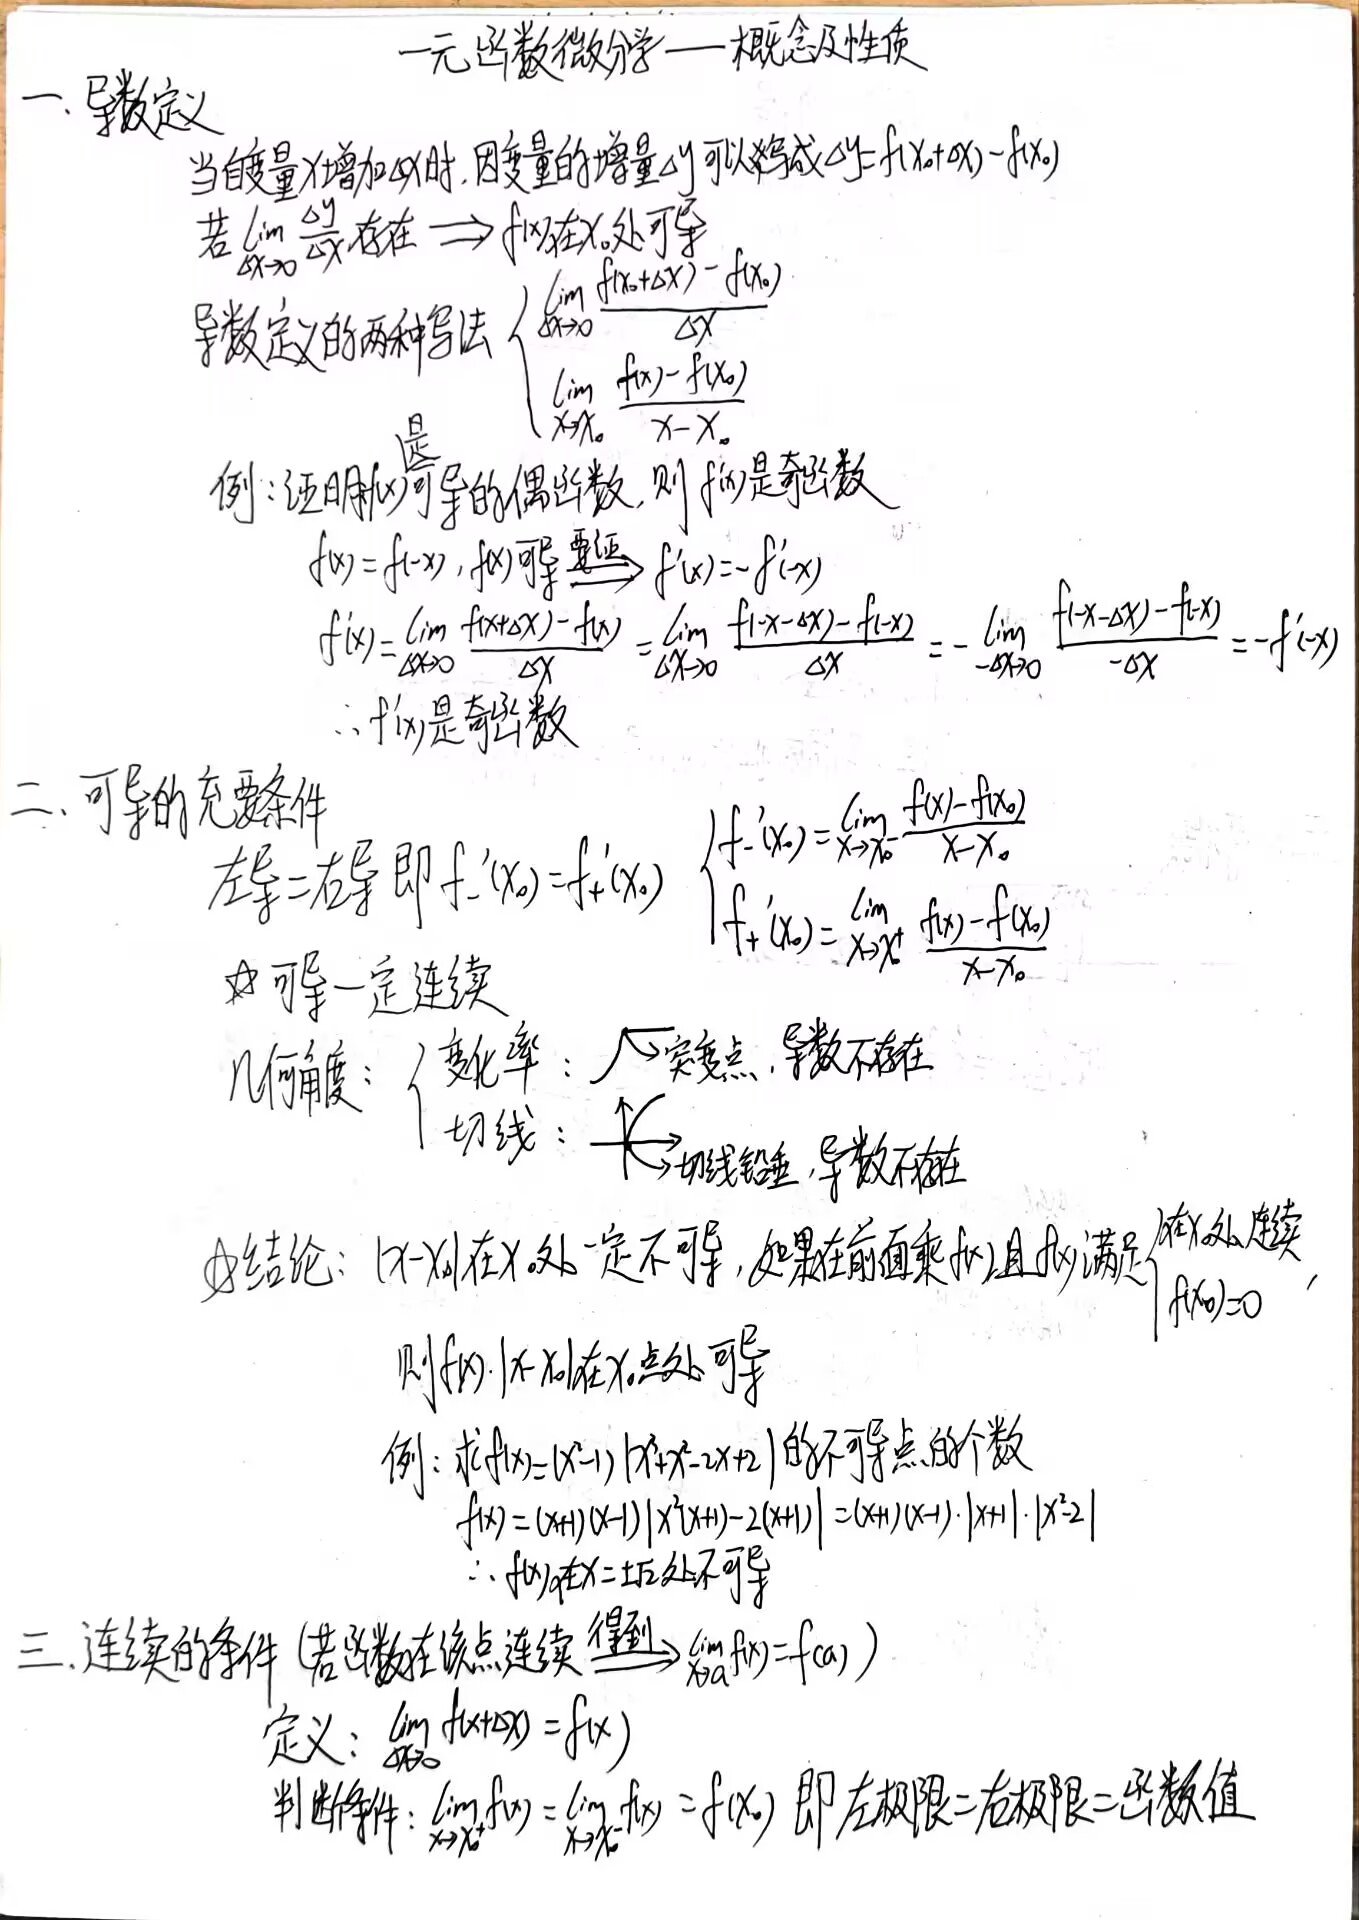 一元函数微分学——概念及性质
一、导数定义
当自变量x增加Δx时,因变量的增量Δy可以写成Δy=f(x₀+Δx)-f(x₀)
若 lim_{Δx→0} Δy/Δx 存在 ⟹ f(x)在x₀处可导
导数定义的两种写法 { lim_{Δx→0} (f(x₀+Δx)-f(x₀))/Δx
lim_{x→x₀} (f(x)-f(x₀))/(x-x₀)
例:证明f(x)是可导的偶函数,则f'(x)是奇函数
f(x)=f(-x),f(x)可导 要证⟹ f'(x)=-f'(-x)
f'(x)=lim_{Δx→0} (f(x+Δx)-f(x))/Δx = lim_{Δx→0} (f(-x-Δx)-f(-x))/Δx = -lim_{-Δx→0} (f(-x-Δx)-f(-x))/(-Δx) = -f'(-x)
∴f'(x)是奇函数
二、可导的充要条件
左导=右导 即 f₋'(x₀)=f₊'(x₀) { f₋'(x₀)=lim_{x→x₀⁻} (f(x)-f(x₀))/(x-x₀)
f₊'(x₀)=lim_{x→x₀⁺} (f(x)-f(x₀))/(x-x₀)
☆可导一定连续
几何角度: { 变化率: 突变点,导数不存在
切线: 切线铅垂,导数不存在
☆结论:|x-x₀|在x₀处一定不可导,如果在前面乘f(x)且f(x)满足 { 在x₀处连续
f(x₀)=0 ,
则f(x)·|x-x₀|在x₀点处可导
例:求f(x)=(x²-1)|x³+x²-2x+2|的不可导点的个数
f(x)=(x+1)(x-1)|x²(x+1)-2(x+1)|=(x+1)(x-1)·|x+1|·|x²-2|
∴f(x)在x=±√2处不可导
三、连续的条件(若函数在该点连续 得到⟹ lim_{x→a} f(x)=f(a))
定义: lim_{Δx→0} f(x+Δx)=f(x)
判断条件: lim_{x→x₀⁺} f(x)=lim_{x→x₀⁻} f(x)=f(x₀) 即 左极限=右极限=函数值